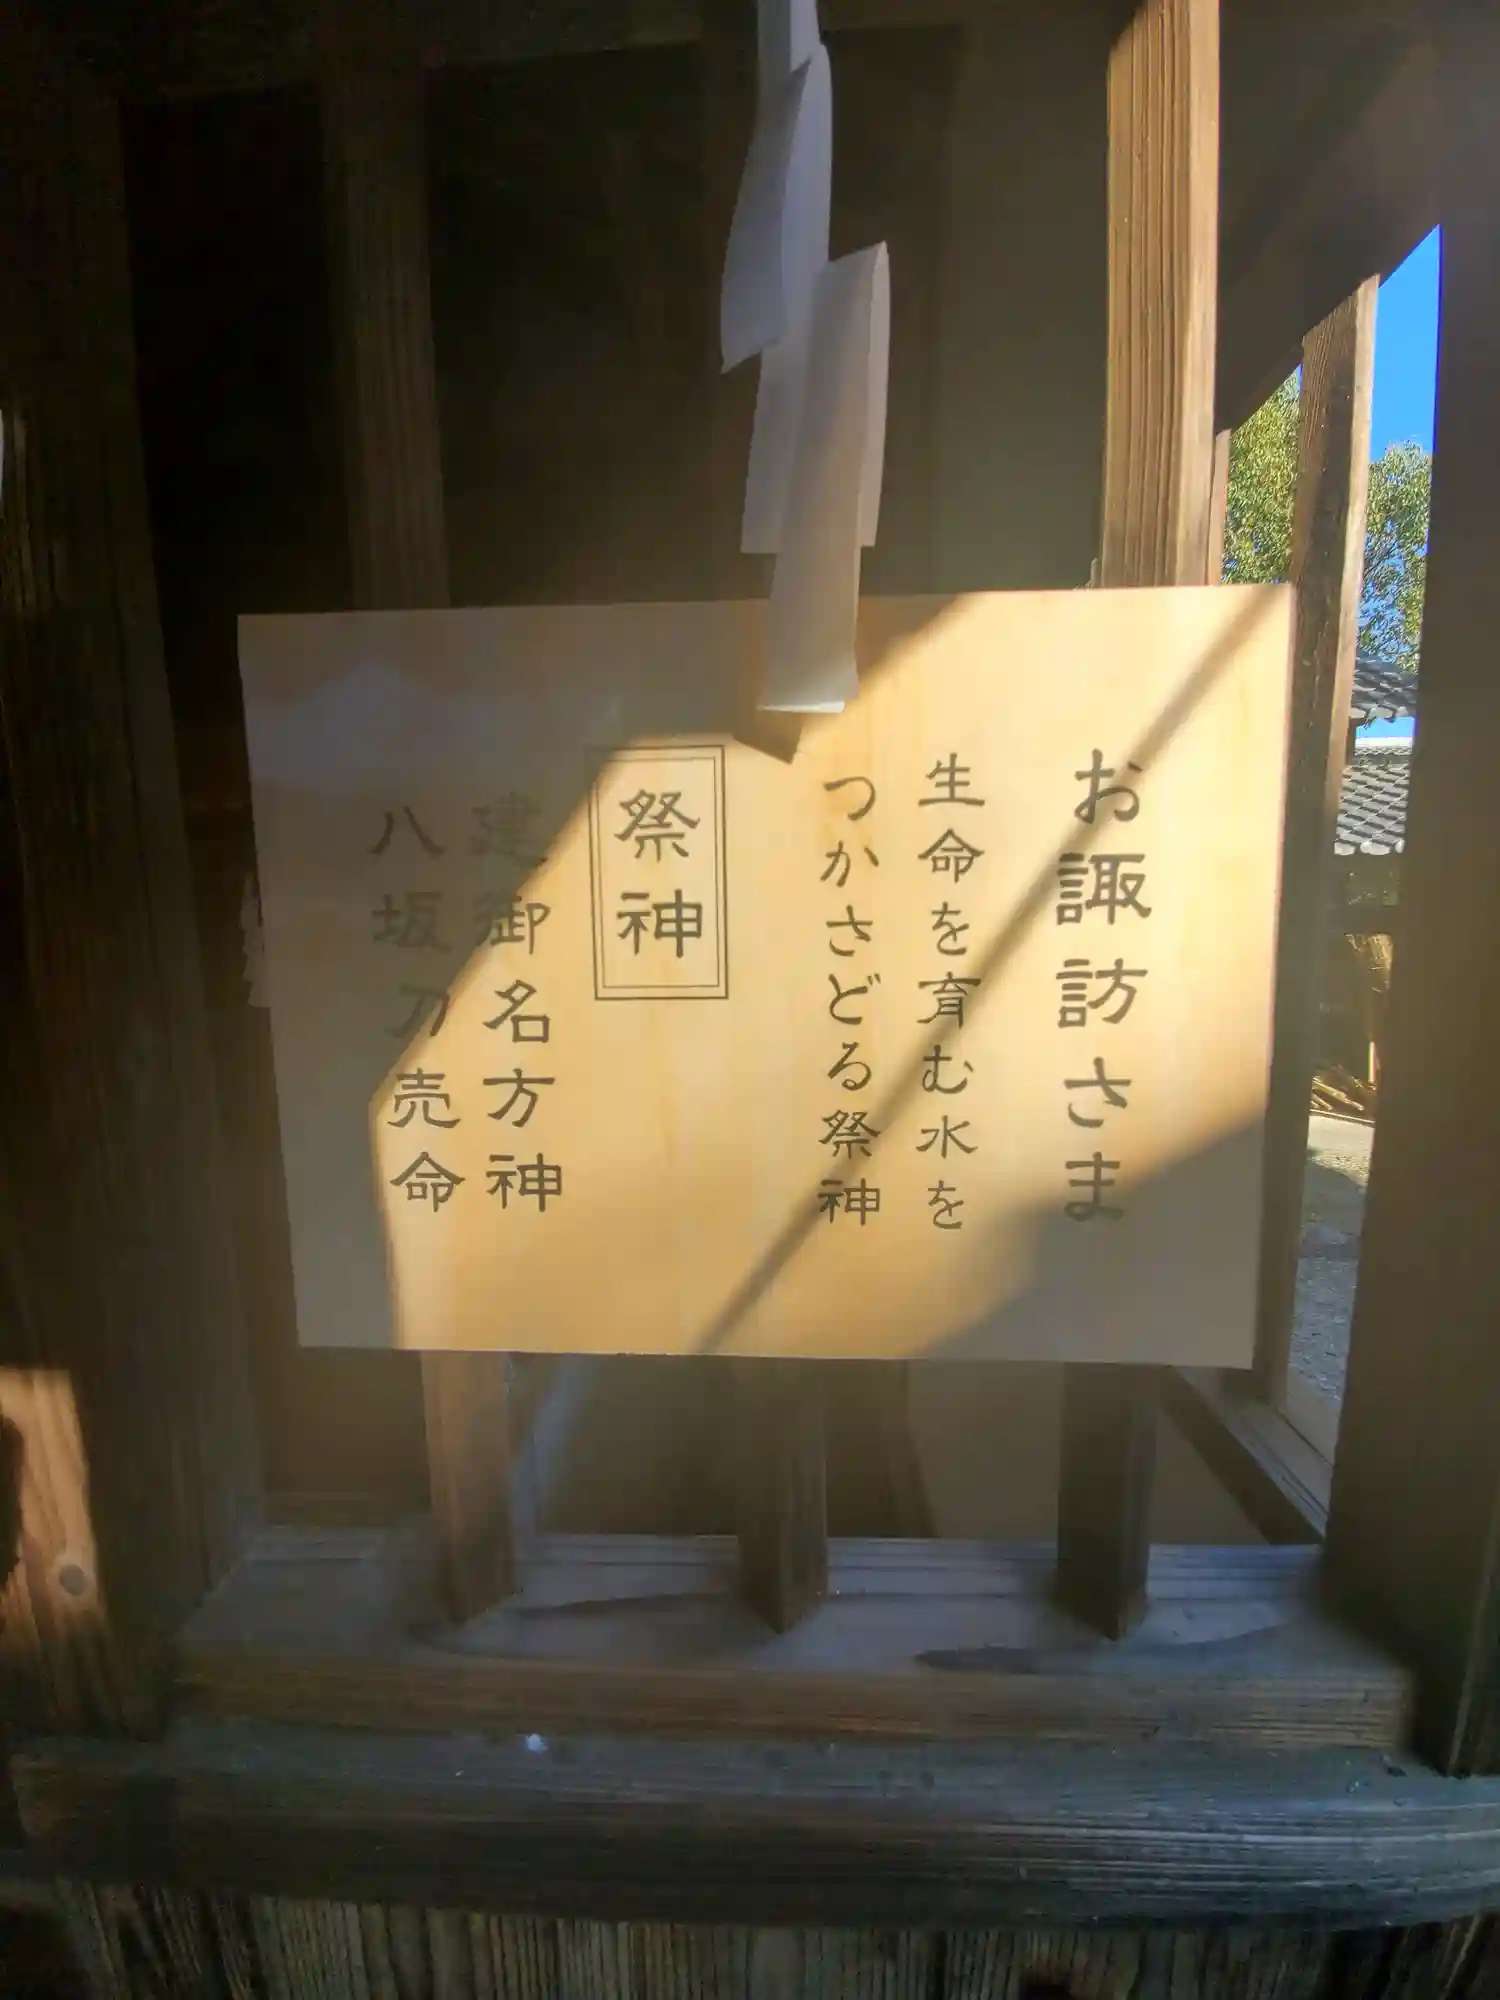 お諏訪さま
生命を育む水を
つかさどる祭神
祭神
建御名方神
八坂刀売命